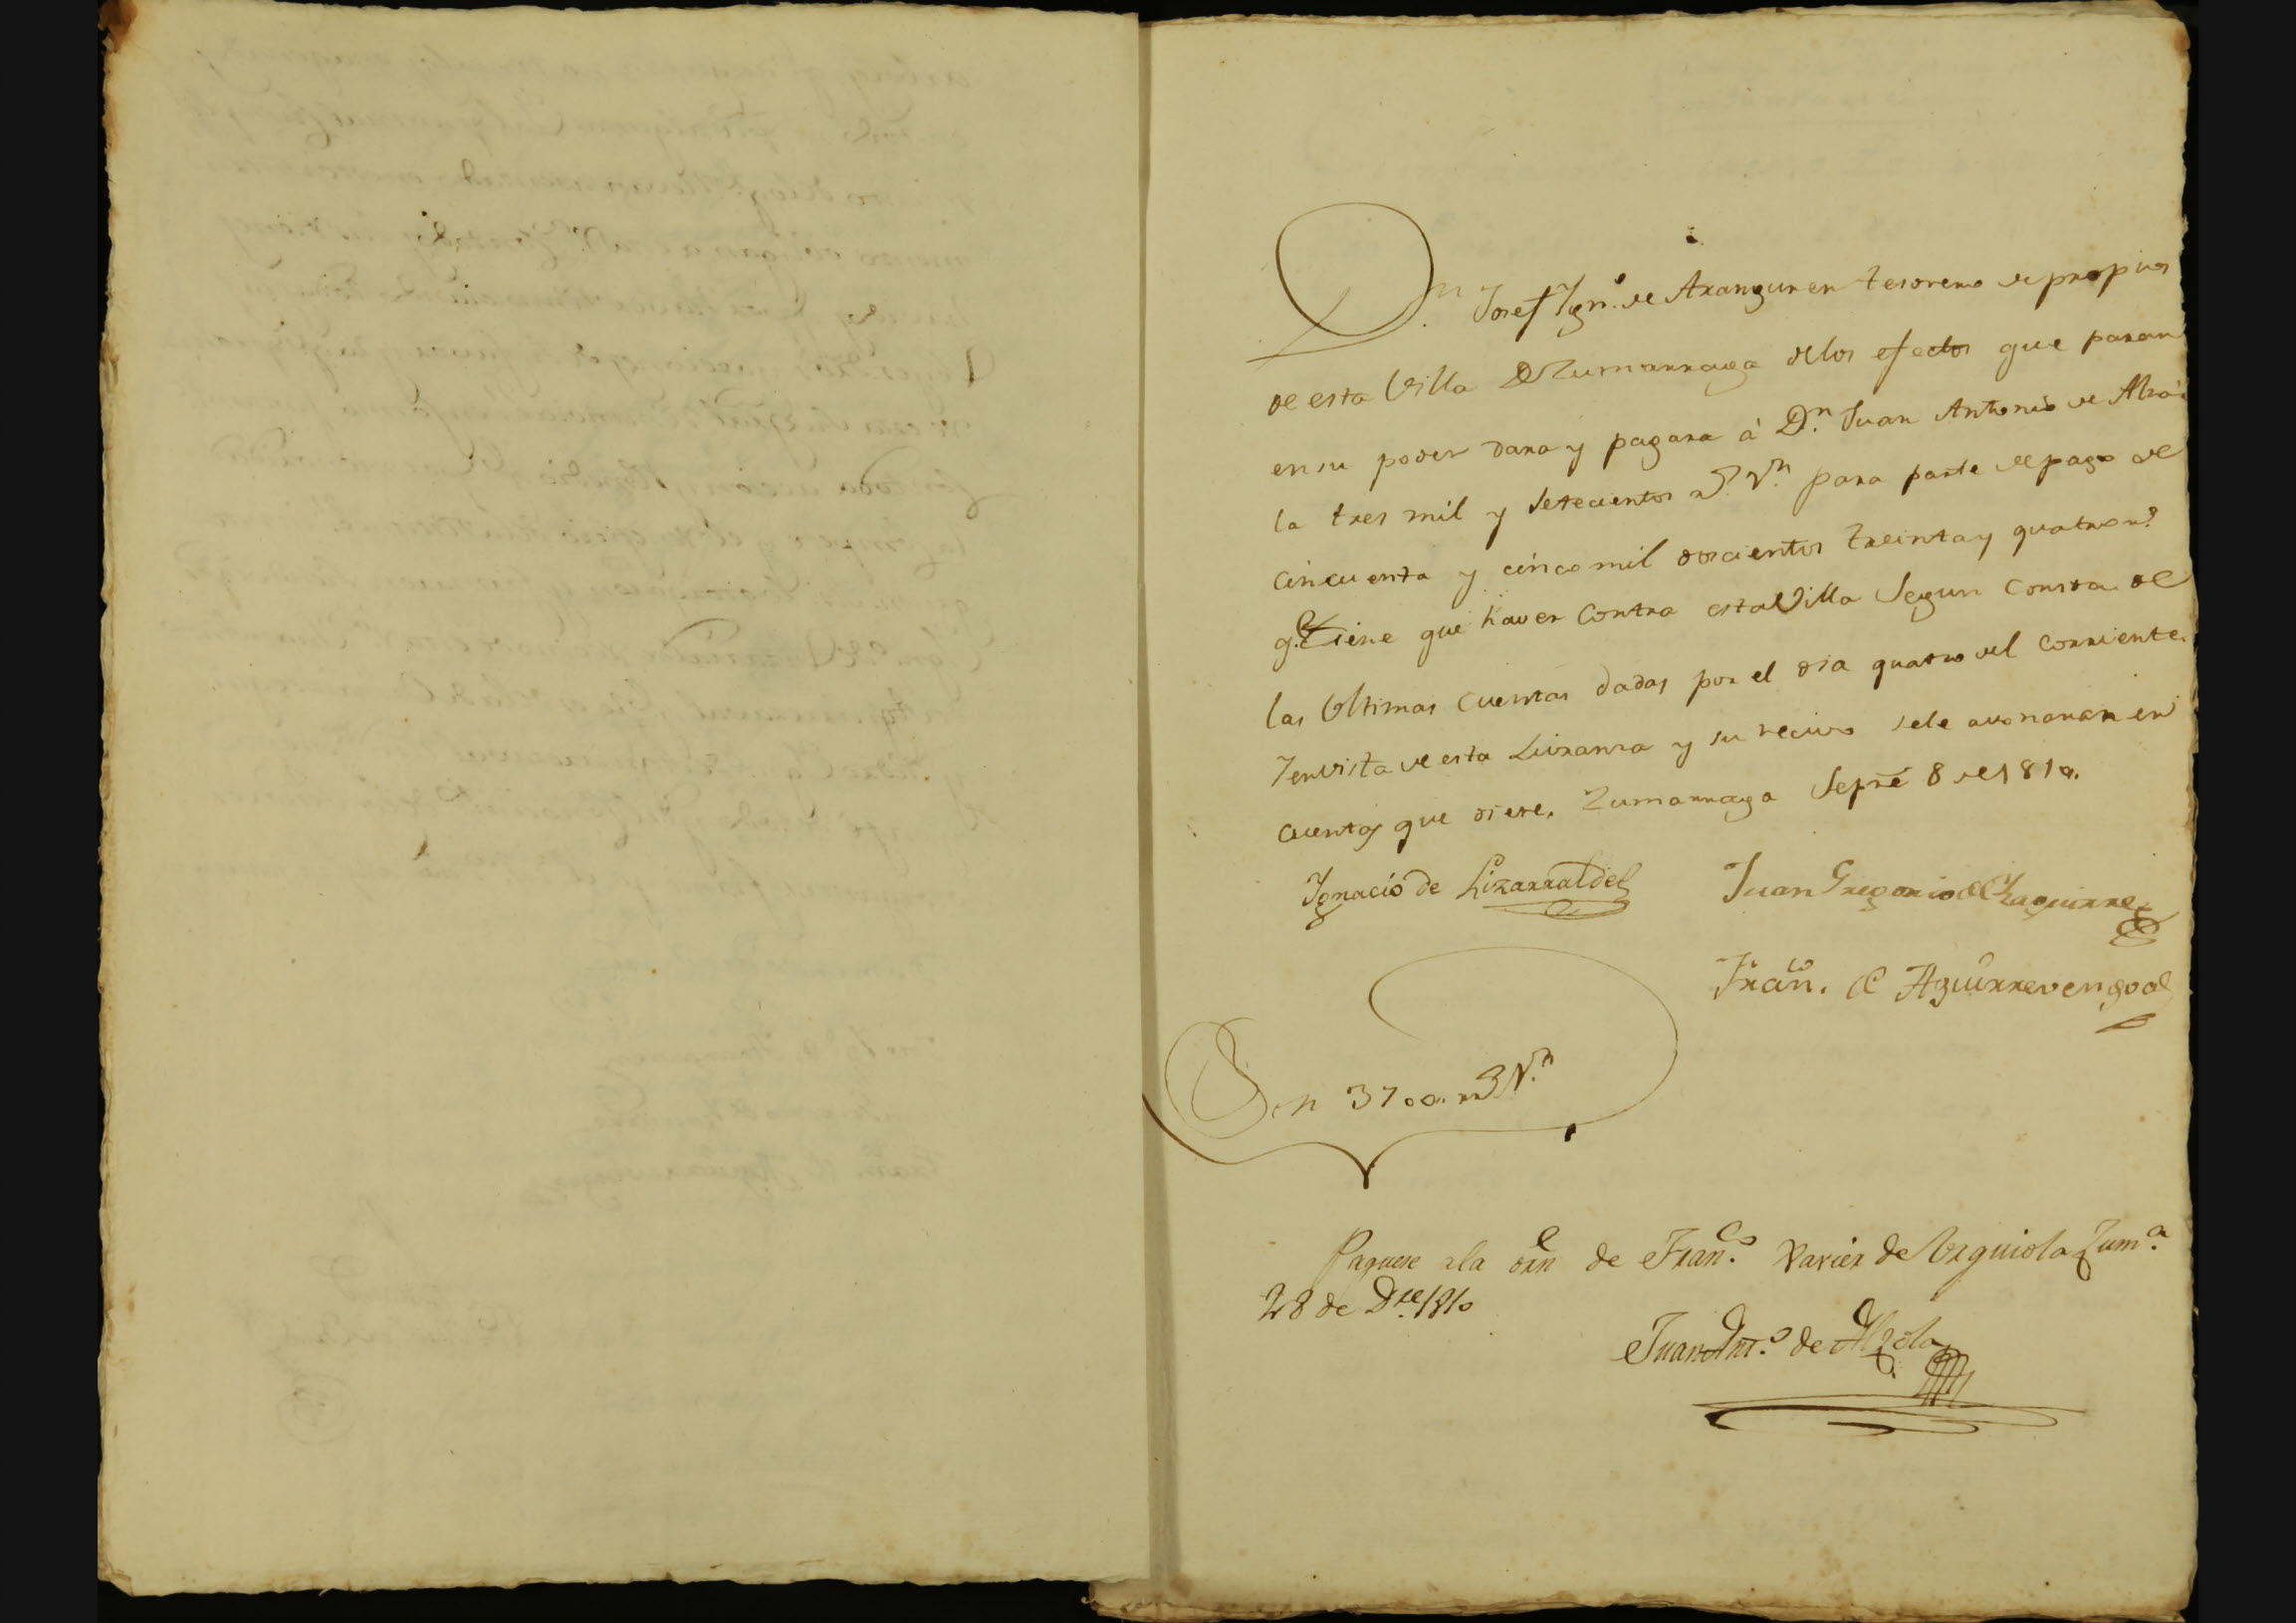 Dn. Josef Ygno. de Aranguren tesorero de propios
de esta Villa de Zumarraga de los efectos que paran
en su poder dara y pagara á Dn. Juan Antonio de Alzo
la tres mil y setecientos rs. vn. para parte de pago de
cincuenta y cinco mil doscientos treinta y quatro rs.
qe. tiene que haver contra esta Villa segun consta de
las Ultimas cuentas dadas por el dia quatro del corriente.
Y en vista de esta Livranza y su recivo se le avonaran en
cuentas que diere. Zumarraga Sepre. 8 de 1810.
Ygnacio de Lizarralde
Juan Gregorio de Yzaguirre
Franco. de Aguirrevengoa
Son 3700. rs. Vn.
Paguese a la orn de Franco. Xavier de Urquiola Zuma.
28 de Dre. 1810
Juan Anto. de Alzola